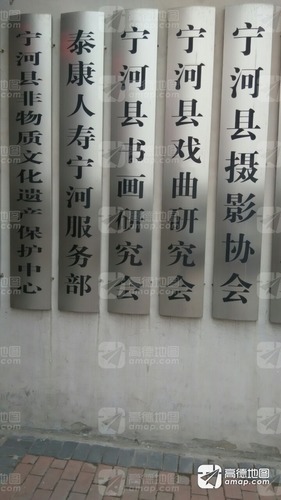 宁河县非物质文化遗产保护中心
泰康人寿宁河服务部
宁河县书画研究会
宁河县戏曲研究会
宁河县摄影协会
高德地图
amap.com